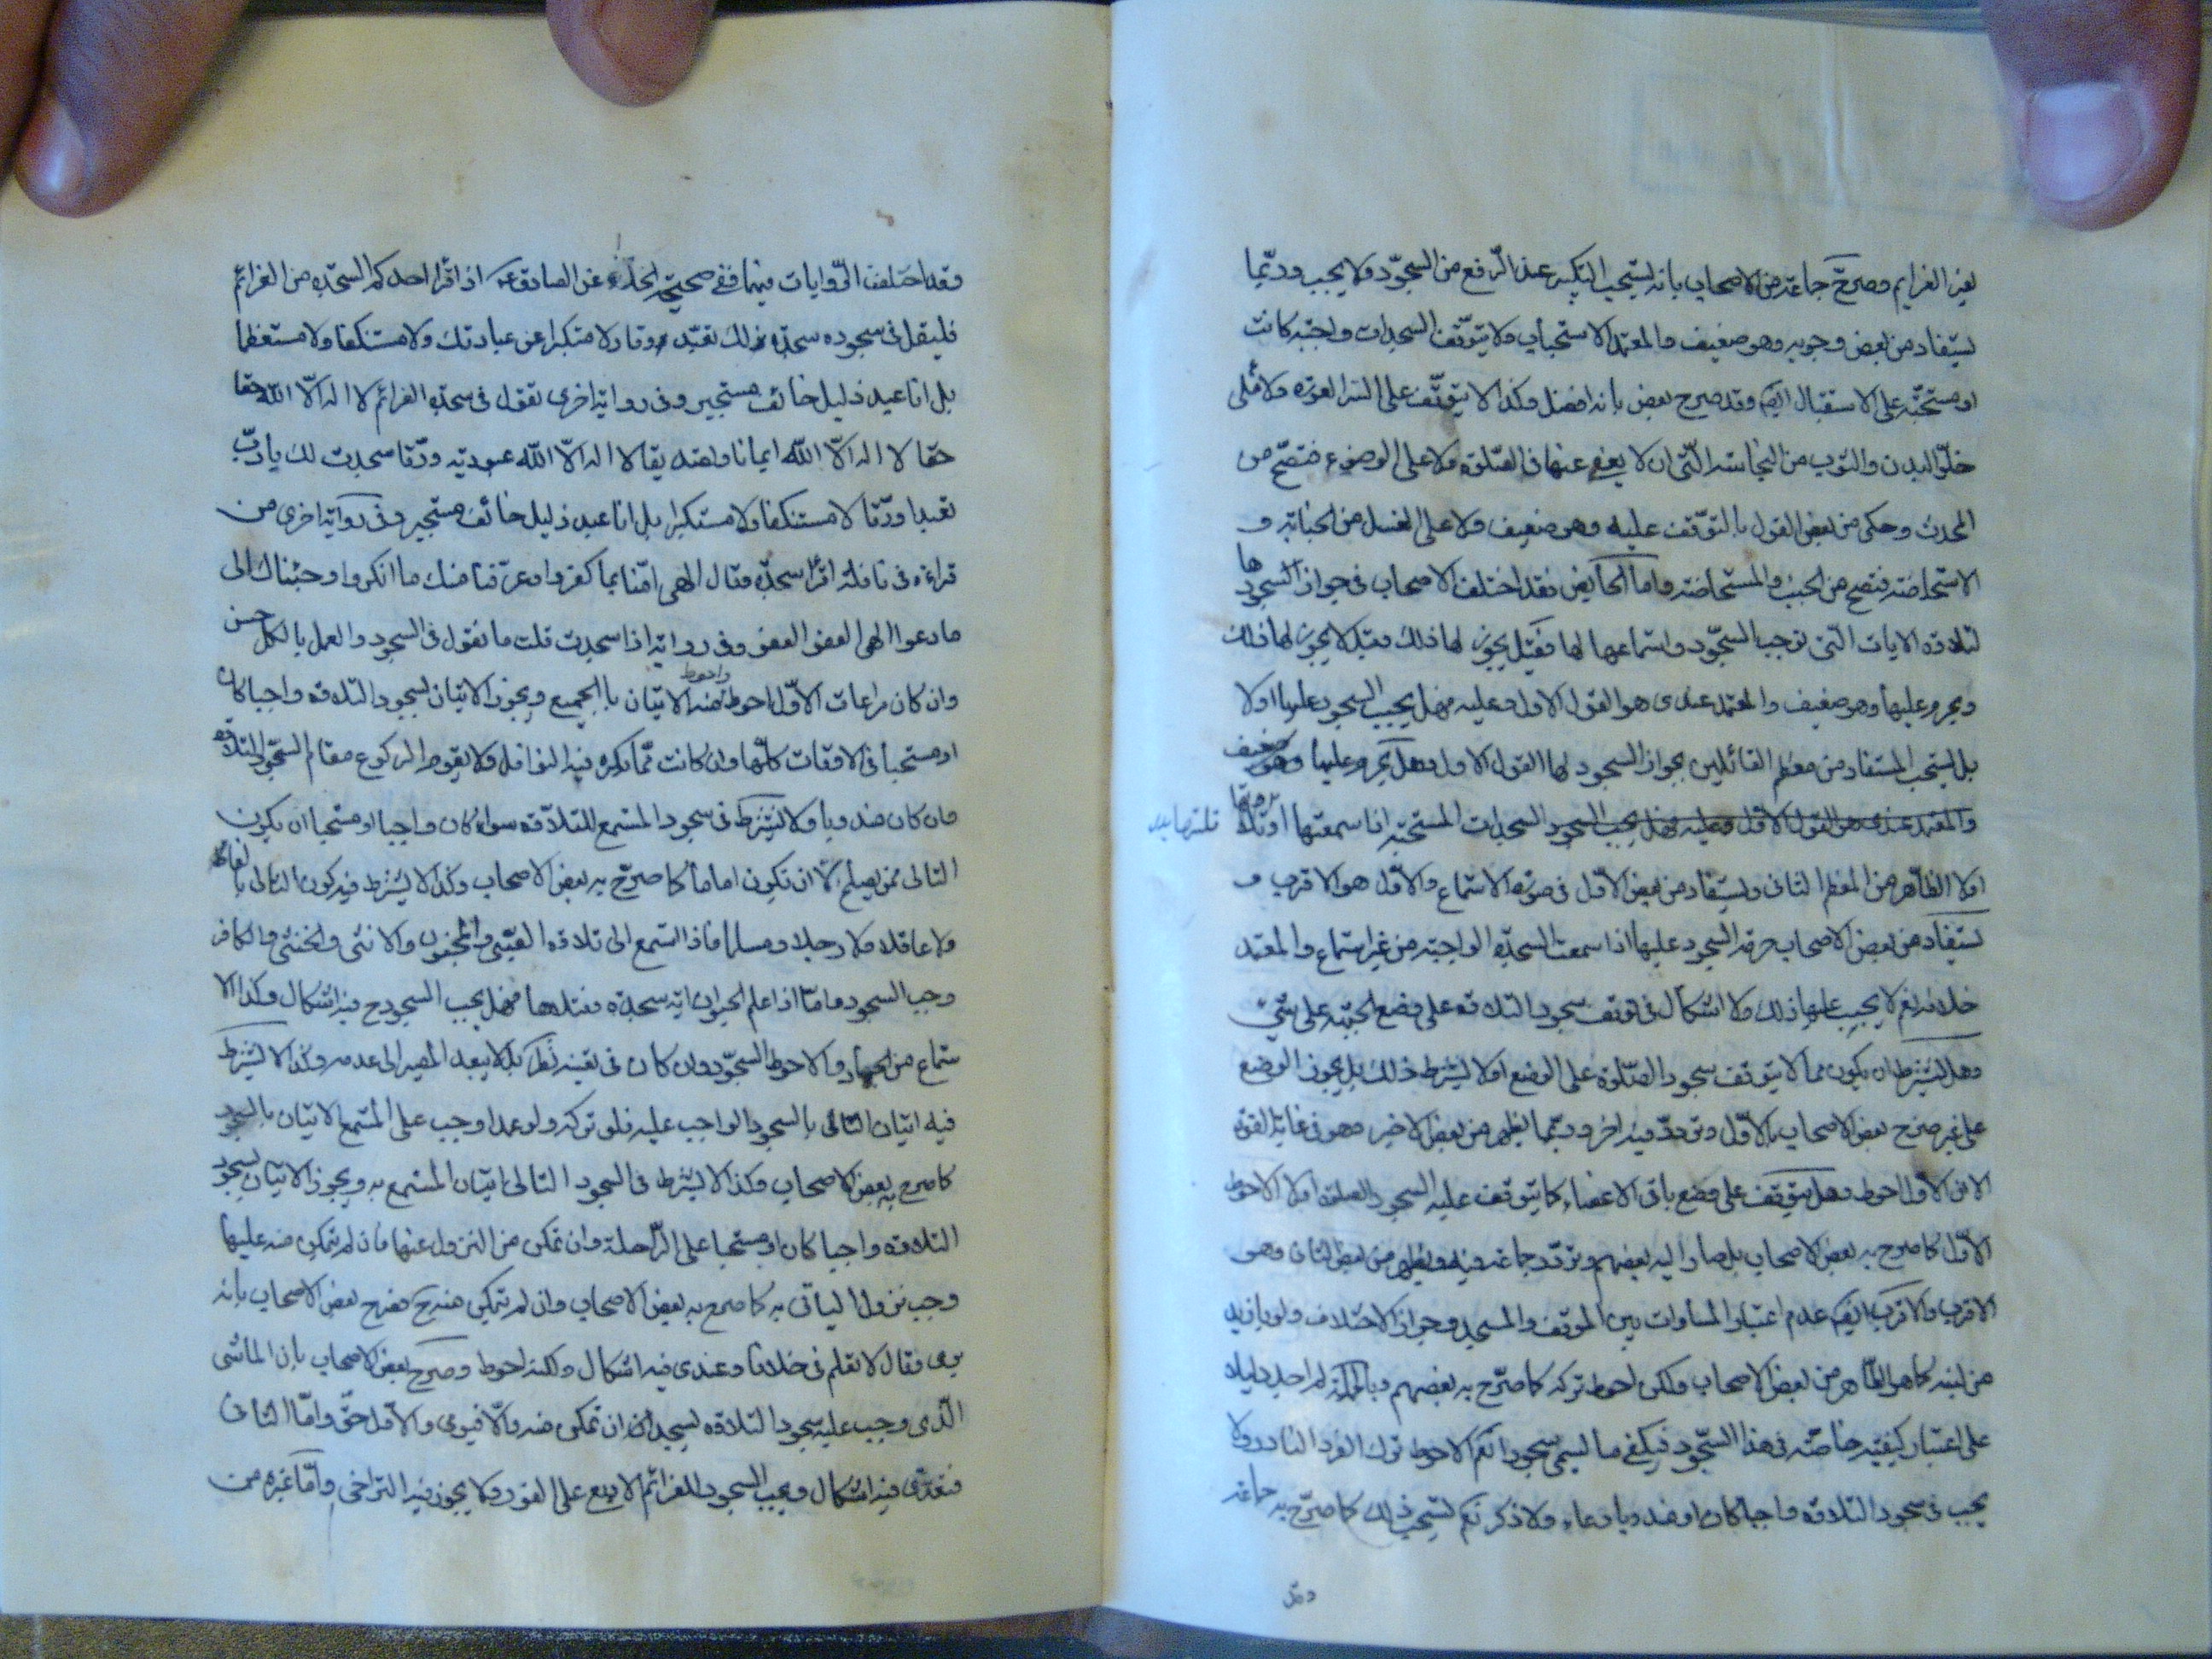 لغير العزايم وصرح جماعة من الاصحاب بانه يستحب التكبير عند الرفع من السجود ولا يجب وربما
يستفاد من بعض وجوبه وهو ضعيف والمعتمد الاستحباب ولا يتوقف السجدات واجبة كانت
او مستحبة على الاستقبال ايضا وقد صرح بعض بانه افضل وكذا لا يتوقف على الستر العورة ولا على
خلو البدن والثوب من النجاسة التى لا يعفى عنها فى الصلوة ولا على الوضوء فتصح من
المحدث وحكى من بعض القول بالتوقف عليه وهو ضعيف ولا على الغسل من الجنابة و
الاستحاضة فتصح من الجنب والمستحاضة واما الحايض فقد اختلف الاصحاب فى جواز السجود ها
لتلاوة الايات التى توجب السجود واستماعها لها فقيل يجوز لها ذلك وقيل لا يجوز لها ذلك
ويحرم عليها وهو ضعيف والمعتمد عندى هو القول الاول وعليه فهل يجب السجود عليها اولا
بل يستحب المستفاد من معظم القائلين بجواز السجود لها القول الاول وهل يحرم عليها وهو ضعيف
والمعتمد عندى هو القول الاول وعليه فهل يجب السجود السجدات المستحبة اذا سمعتها او
اولا الظاهر من المعظم الثانى ويستفاد من بعض الاول فى صورة الاستماع والاول هو الاقرب و
يستفاد من بعض الاصحاب حرمة السجود عليها اذا سمعت السجدة الواجبة من غير استماع والمعتمد
خلافه نعم لا يجب عليها ذلك ولا اشكال فى توقف سجود التلاوة على وضع الجبهة على شئ
وهل يشترط ان يكون مما لا يتوقف سجود الصلوة على الوضع اولا يشترط ذلك بل يجوز الوضع
على غير صرح بعض الاصحاب بالاول وتردد فيه اخر وربما يظهر من بعض الاخير وهو فى غاية القوة
الا ان الاول احوط وهل يتوقف على وضع باقى الاعضاء كما يتوقف عليه السجود الصلوة اولا الاحوط
الاول كما صرح به بعض الاصحاب بل صار اليه بعضهم وتردد جماعة فيه ويظهر من بعض الثانى وهو
الاقرب والاقرب ايضا عدم اعتبار المساوات بين الموقف والمسجد وجواز الاختلاف ولو بازيد
من لبنة كما هو الظاهر من بعض الاصحاب ولكن احوط تركه كما صرح به بعضهم وبالجملة لم اجد دليلا
على اعتبار كيفية خاصة فى هذا السجود فيكفى ما يسمى سجودا نعم الاحوط ترك الفرد النادر ولا
يجب فى سجود التلاوة واجبا كان او مندوبا دعاء ولا ذكر نعم يستحب ذلك كما صرح به جماعة
وقد اختلفت الروايات فيها ففى صحيحة الحذاء عن الصادق ع اذا قرا احدكم السجدة من العزائم
فليقل فى سجوده سجدت لك تعبدا ورقا لا متكبرا عن عبادتك ولا مستنكفا ولا مستعظما
بل انا عبد ذليل خائف مستجير وفى رواية اخرى تقول فى سجدة العزائم لا اله الا الله حقا
حقا لا اله الا الله ايمانا وتصديقا لا اله الا الله عبودية ورقا سجدت لك يا رب
تعبدا ورقا لا مستنكفا ولا مستكبرا بل انا عبد ذليل خائف مستجير وفى رواية اخرى من
قراءة فى نافلة اقرا سجدة فقال الهى امنا بما كفروا وعرفنا منك ما انكروا وجئناك الى
ما دعوا الهى العفو العفو وفى رواية اذا سجدت قلت ما تقول فى السجود والعمل بالكل حسن
وان كان مراعات الاول احوط واحوط منه الاتيان بالجميع ويجوز الاتيان بسجود التلاوة واجبا كان
او مستحبا فى الاوقات كلها وان كانت مما يكره فيه النوافل ولا يقوم الركوع مقام السجود التلاوة
وان كان مندوبا ولا يشترط فى سجود المستمع للتلاوة سواء كان واجبا او مستحبا ان يكون
التالى ممن يصلح لان يكون اماما كما صرح به بعض الاصحاب وكذا لا يشترط فيه كون التالى بالغا
ولا عاقلا ولا رجلا ومسلما فاذا استمع الى تلاوة الصبى والمجنون والانثى والخنثى والكافر
وجب السجود واما اذا علم الحيوان اية سجدة فتلاها فهل يجب السجود ح فيه اشكال وكذا الا
ستماع من الجهاد والاحوط السجود وان كان فى تعينه نظر بل لا يبعد المصير الى عدمه وكذا لا يشترط
فيه اتيان التالى بالسجود الواجب عليه فلو تركه ولو عمدا وجب على المستمع الاتيان بالسجود
كما صرح به بعض الاصحاب وكذا لا يشترط فى السجود التالى اتيان المستمع به ويجوز الاتيان بسجود
التلاوة واجبا كان او مستحبا على الراحلة وان تمكن من النزول عنها فان لم يتمكن منه عليها
وجب نزول الياتى به كما صرح به بعض الاصحاب وان لم يتمكن منه ح فصرح بعض الاصحاب بانه
يومى فقال لا نعلم فى خلافا وعندى فيه اشكال ولكنه احوط وصرح بعض الاصحاب بان الماشى
الذى وجب عليه سجود التلاوة يسجد ان تمكن منه والا فيومى والاول حق واما الثانى
فعندى فيه اشكال ويجب السجود للعزائم الاربع على الفور ولا يجوز فيه التراخى واما غيره من